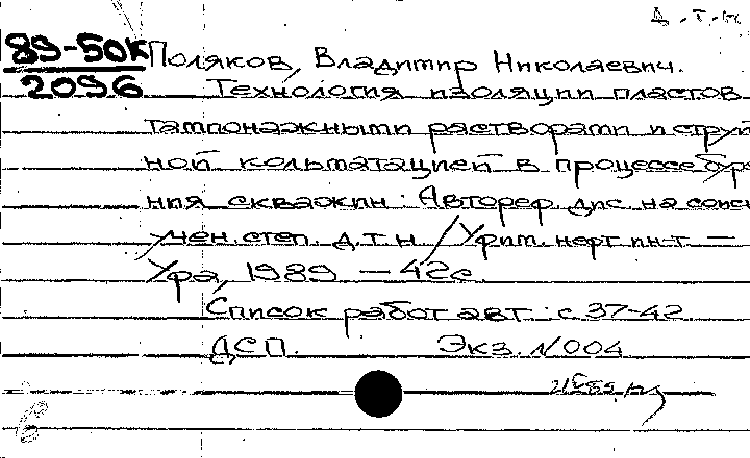 Д.т.н
89-50к
2096
Поляков, Владимир Николаевич.
Технология изоляции пластов
тампонажными растворами и струй
ной кольматацией в процессе буре
ния скважин: Автореф. дис. на соиск
учен. степ. д.т.н. / Уфим. нефт. ин-т. —
Уфа, 1989. — 42с.
Список работ авт.: с 37-42
ДСП. Экз. N004